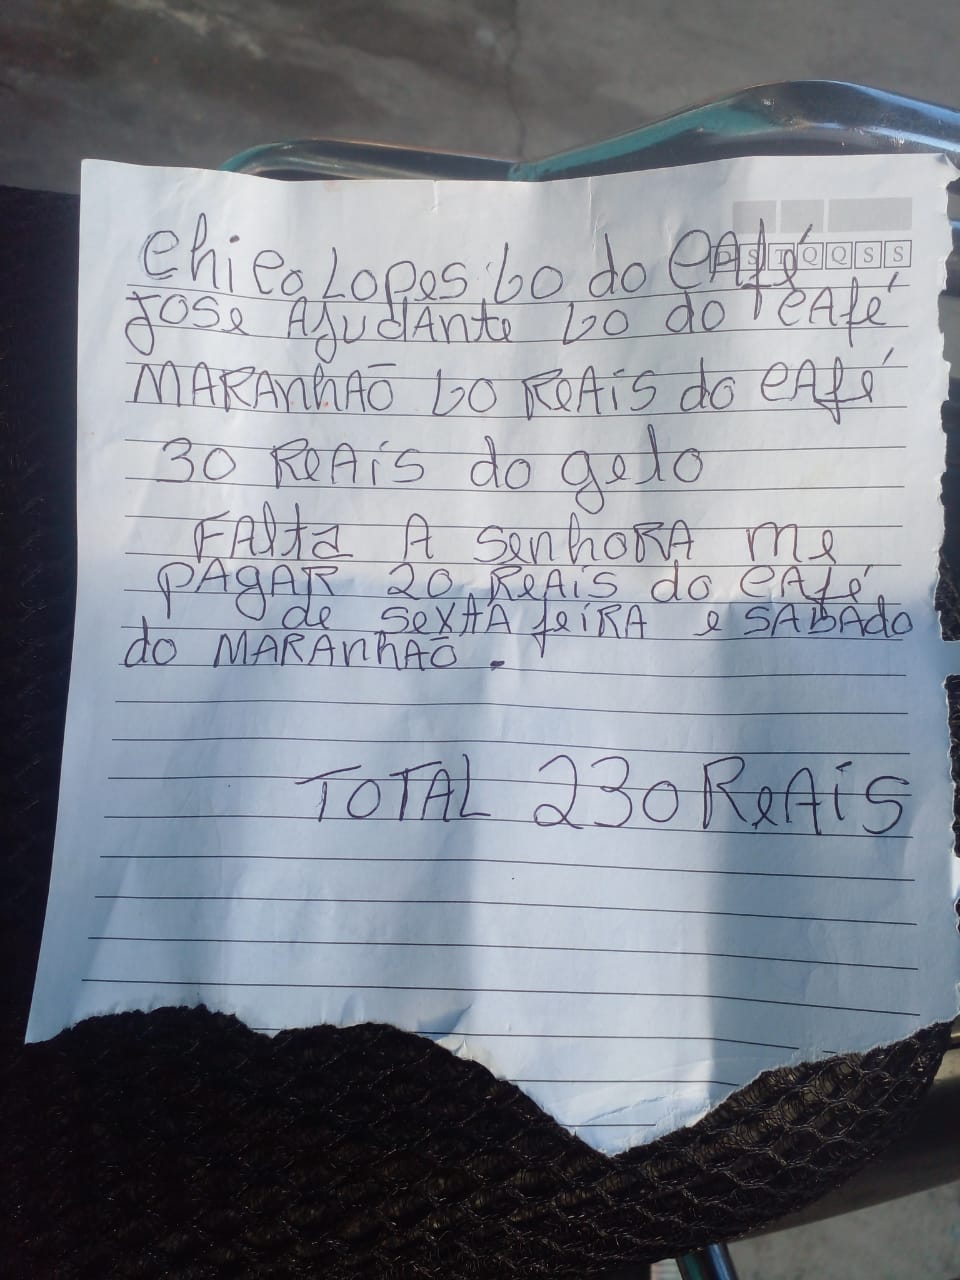 D S T Q Q S S
Chico Lopes 60 do CAfé
José AjudAnte 60 do CAfé
MARAnhÃO 60 ReAis do CAfé
30 ReAis do gelo
FAltA A SenhoRA me
pAgAR 20 ReAis do CAfé
de SextA feiRA e SABAdo
do MARAnhÃO.
TOTAL 230 ReAis